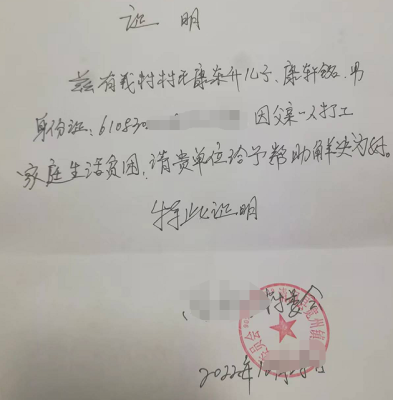 证 明
兹有我村村民康东升儿子、康轩铭、男
身份证：610830 因父亲一人打工
家庭生活贫困，请贵单位给予帮助解决为好。
特此证明
村委会
2022年10月